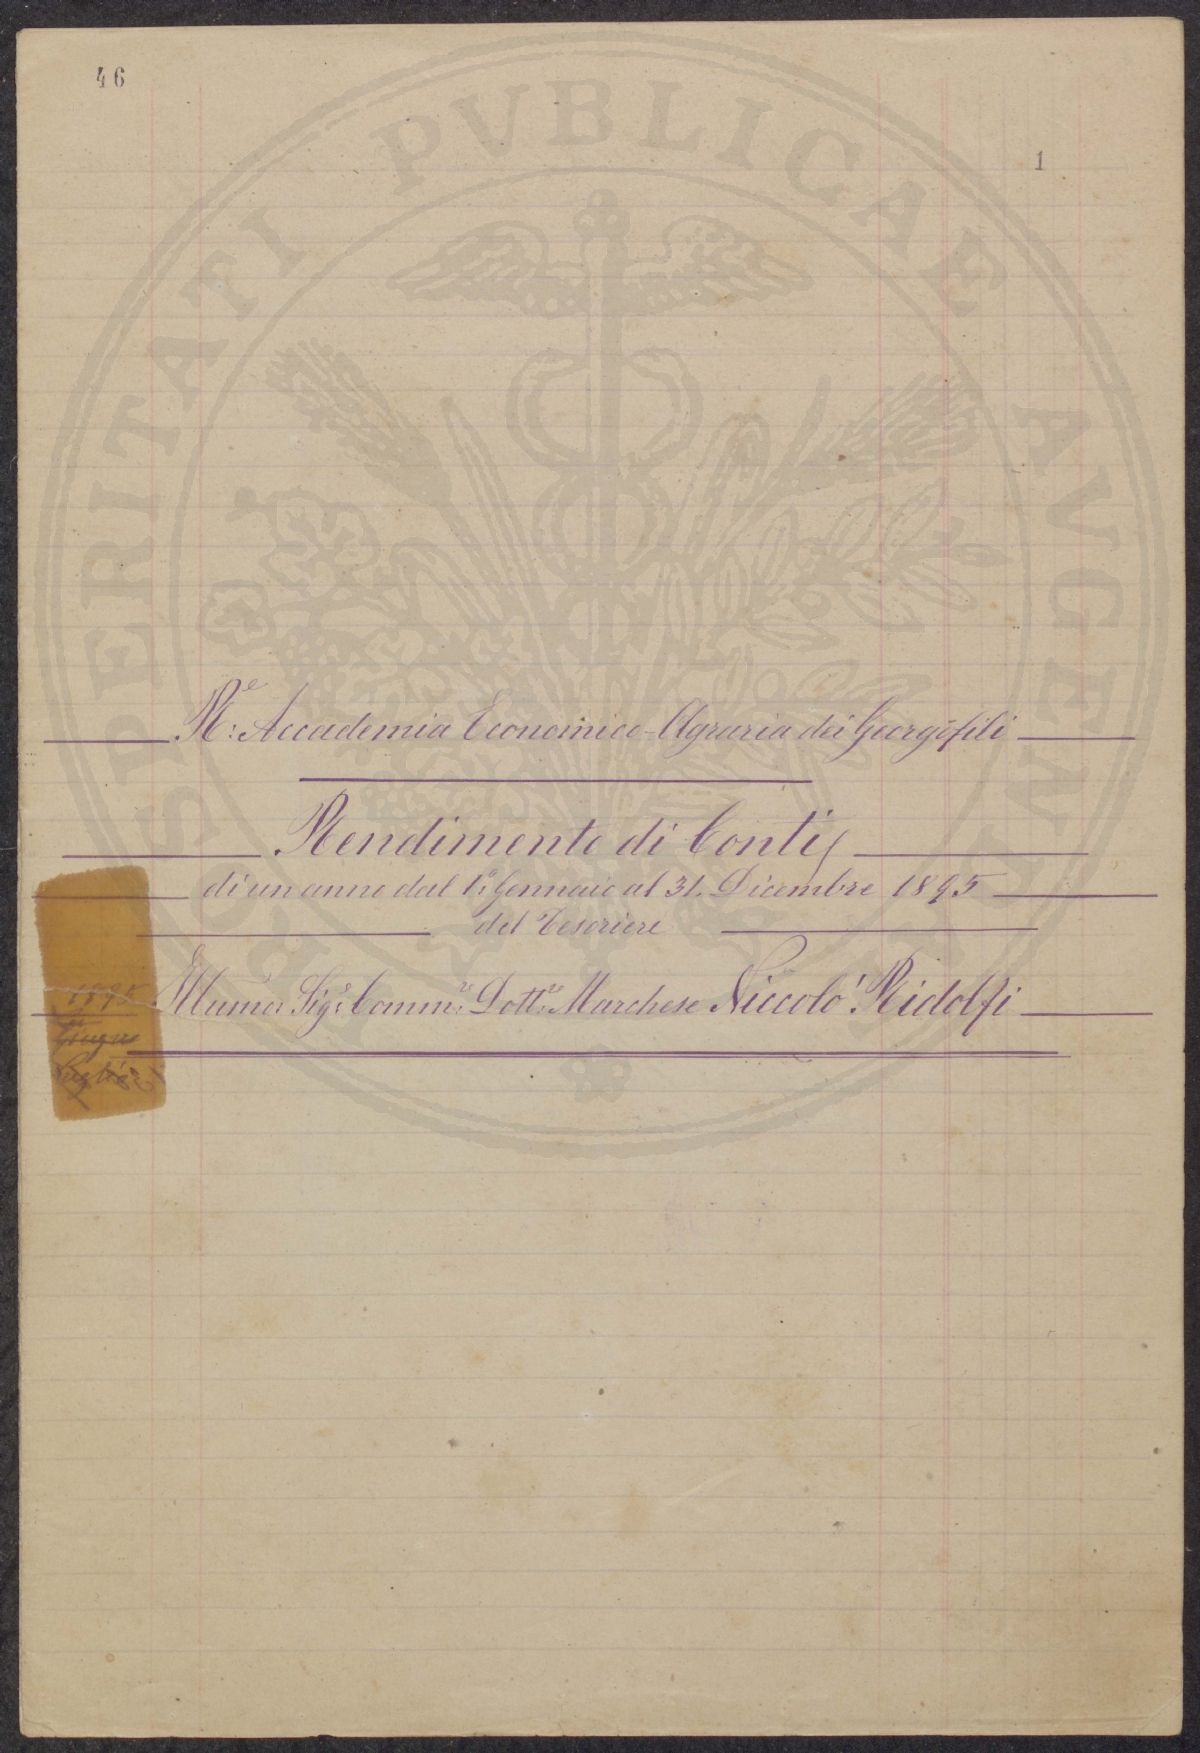 46
1
PROSPERITATI PVBLICAE AVGENDAE
R.e Accademia Economico-Agraria dei Georgofili
Rendimento di Conti
di un anno dal 1° Gennaio al 31. Dicembre 1895
del Tesoriere
Illumo Sigr Commre Dottre Marchese Niccolò Ridolfi
1895
Giugno